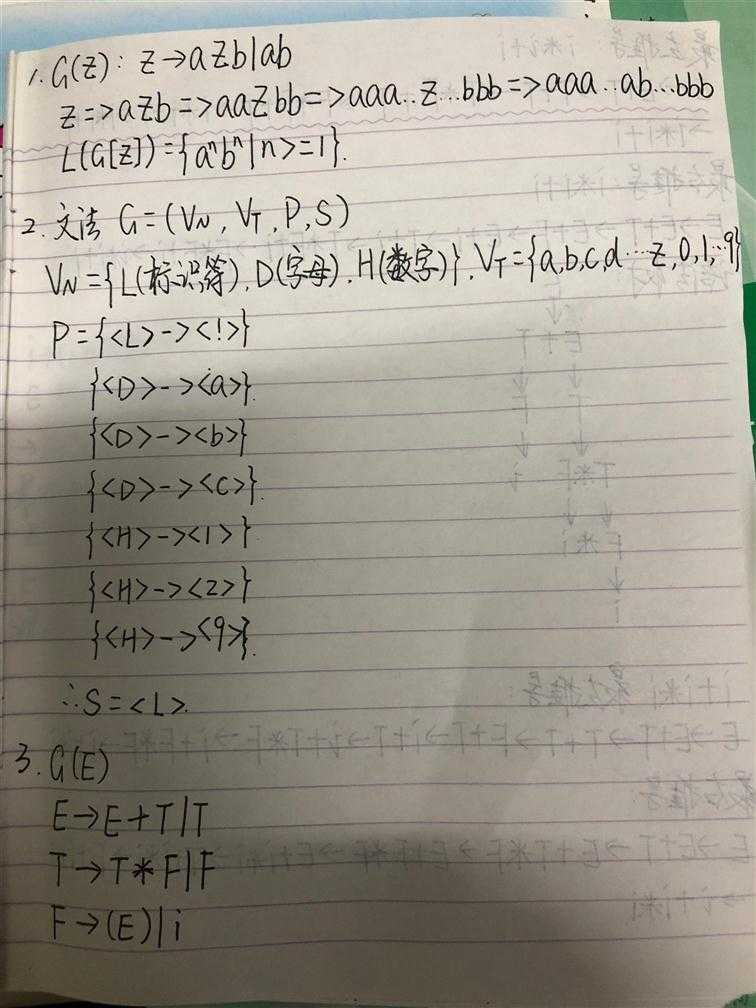 1. G(Z): Z→aZb|ab
Z=>aZb=>aaZbb=>aaa..Z...bbb=>aaa..ab...bbb
L(G[Z])={aⁿbⁿ|n>=1}.
2. 文法 G=(VN, VT, P, S)
VN={L(标识符), D(字母), H(数字)}, VT={a,b,c,d...z,0,1,..9}
P={<L>-><!>}
{<D>-><a>}.
{<D>-><b>}
{<D>-><c>}.
{<H>-><1>}
{<H>-><2>}
{<H>-><9>}.
∴S=<L>.
3. G(E)
E→E+T|T
T→T*F|F
F→(E)|i